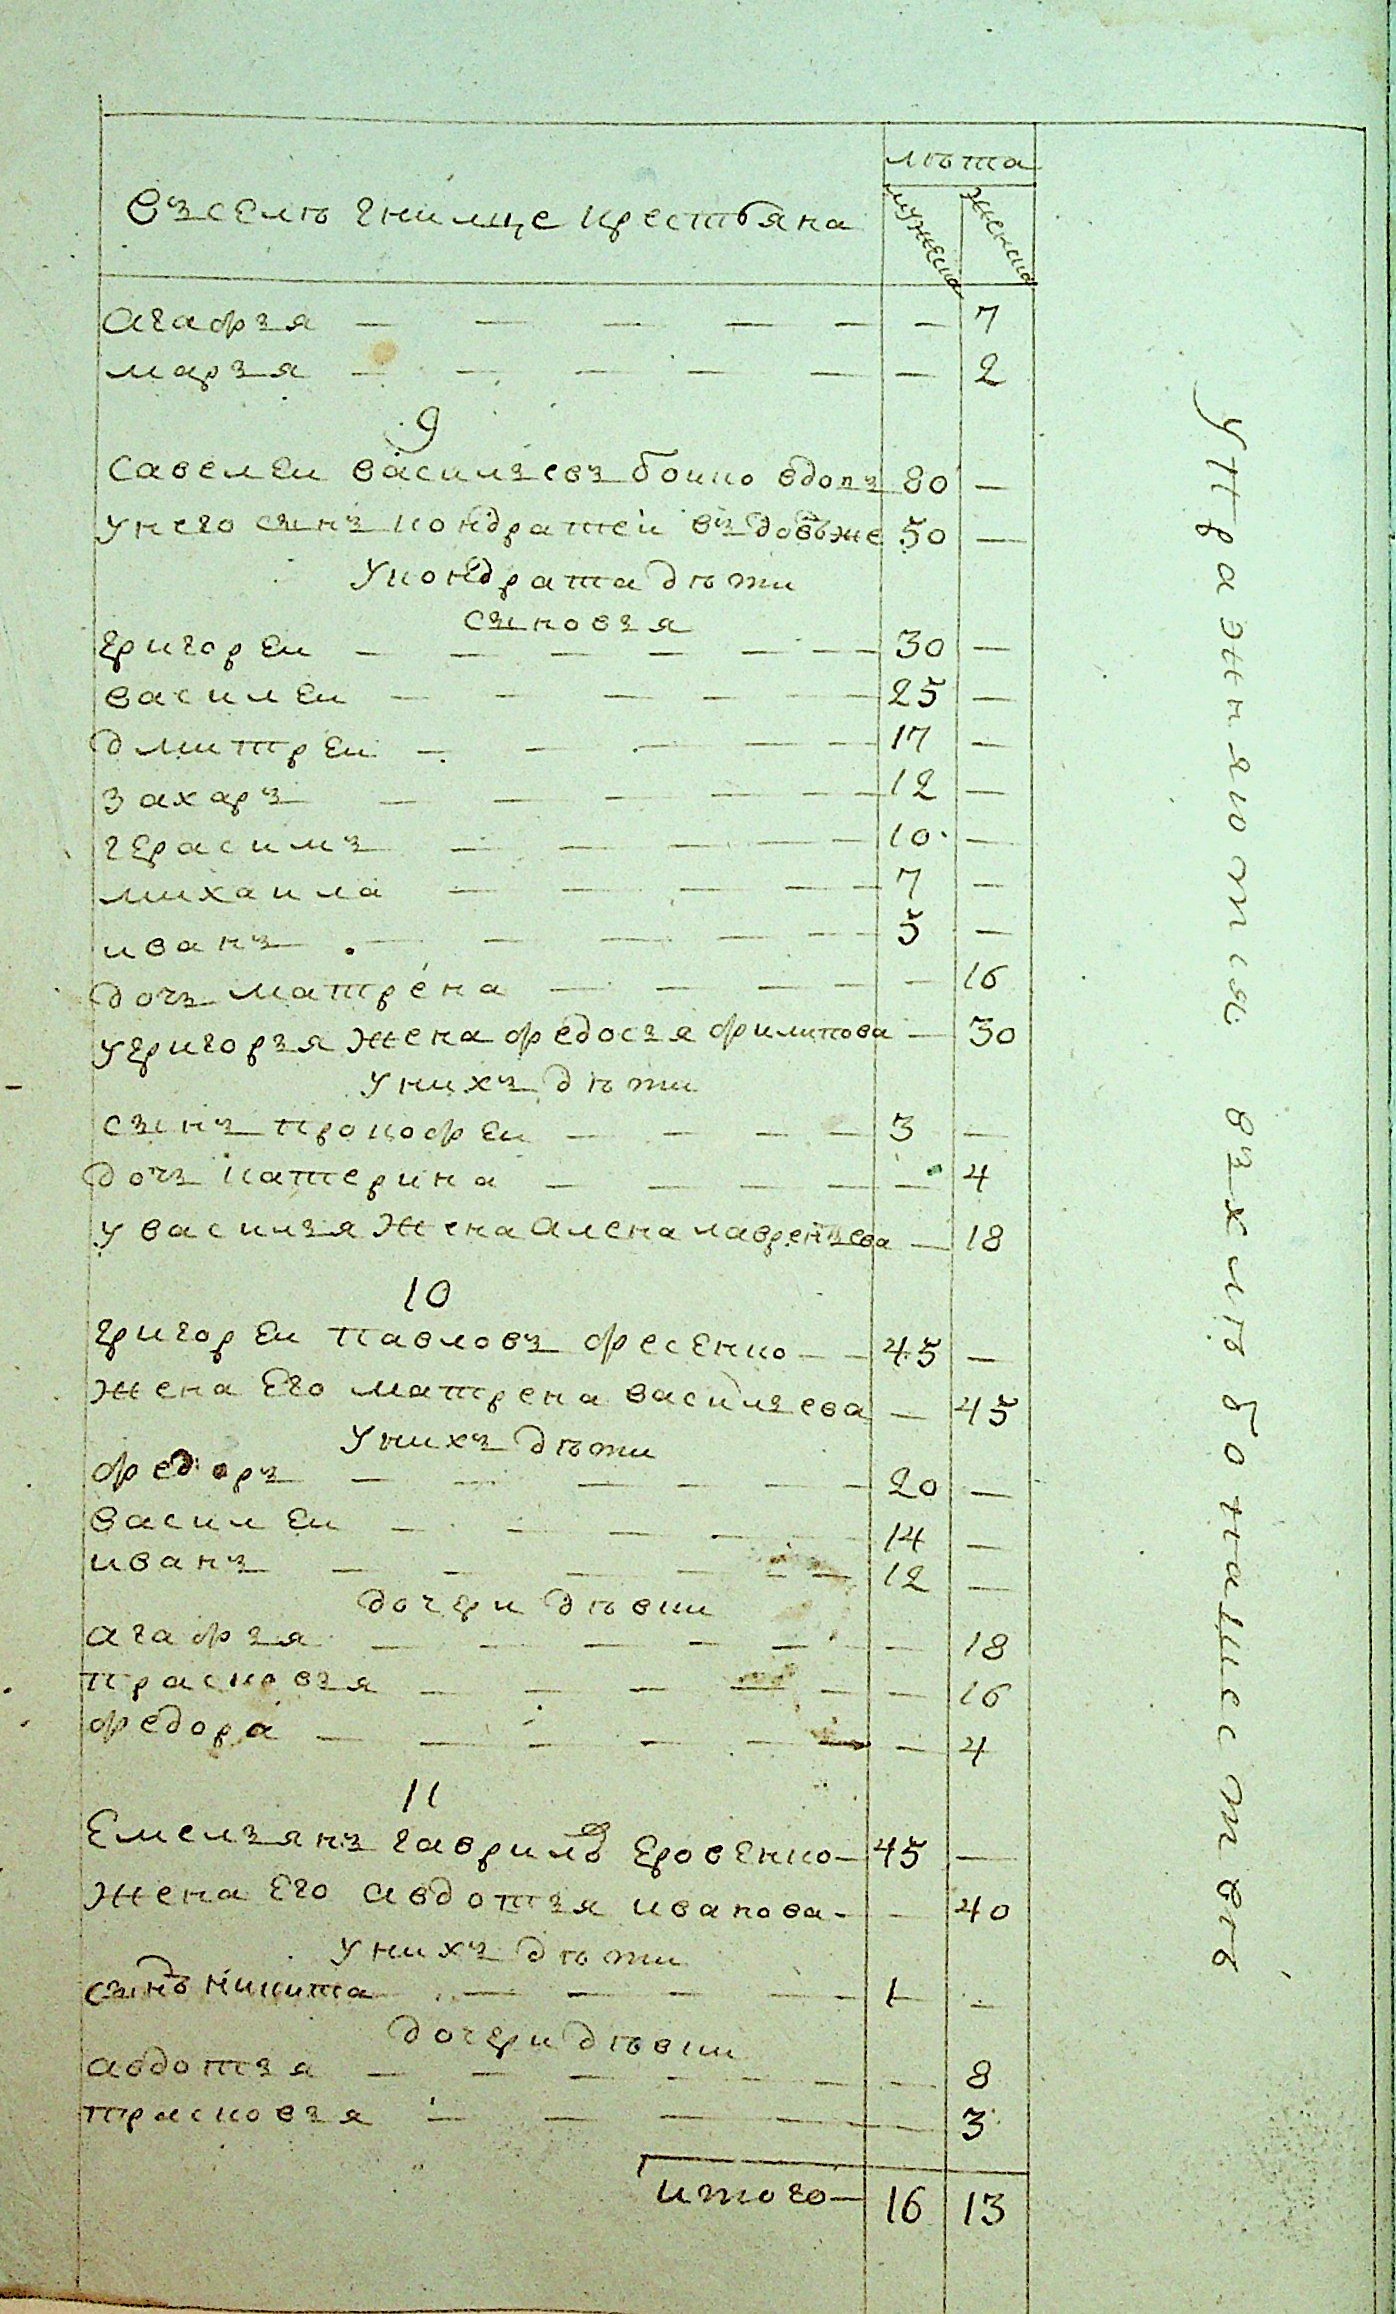 лѣта
мужеска
женска
въ селѣ гнилице крестьяна
агафъя — — — — — — 7
маръя — — — — — — 2
9
савелеи василъевъ боико вдопъ 80 —
у него сынъ кондратеи въ довъже 50 —
у кондрата дѣти
сыновъя
григореи — — — — — 30 —
василеи — — — — — 25 —
дмитреи — — — — 17 —
захаръ — — — — — 12 —
герасимъ — — — — 10 —
михаила — — — — 7 —
иванъ — — — — — 5 —
дочъ матрена — — — — — 16
у григоръя жена федосъя филипова — 30
у нихъ дѣти
сынъ прокофеи — — — — 3 —
дочъ катерина — — — — — 4
у василъя жена алена лаврентъева — 18
10
григореи павловъ фесенко — — 45 —
жена его матрена василъева — 45
у нихъ дѣти
федоръ — — — — — 20 —
василеи — — — — 14 —
иванъ — — — — — 12 —
дочери дѣвки
агафъя — — — — — — 18
прасковъя — — — — — — 16
федора — — — — — — 4
11
емелъянъ гаврилѡв еровенко — 45 —
жена его авдотъя иванова — — 40
у нихъ дѣти
сынъ никита — — — — 1 —
дочери дѣвки
авдотъя — — — — — — 8
прасковъя — — — — — 3
итого — 16 13
упражняются въ хлѣбонашествѣ